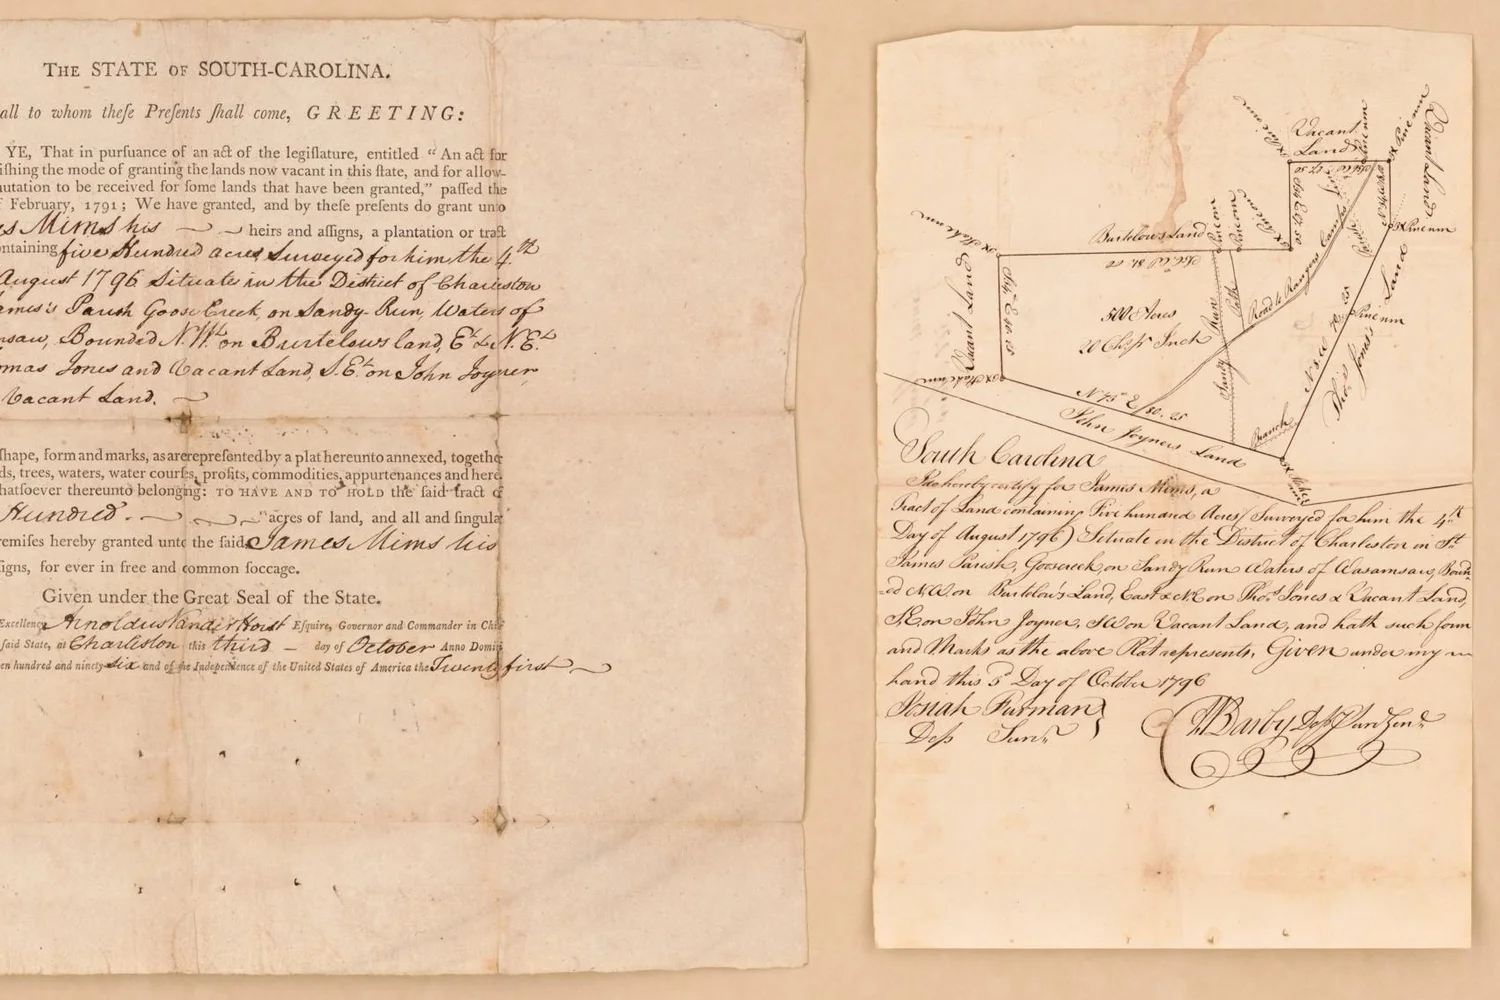 THE STATE OF SOUTH-CAROLINA.
all to whom theſe Preſents ſhall come, GREETING:
YE, That in purſuance of an act of the legiſlature, entitled “ An act for
iſhing the mode of granting the lands now vacant in this ſtate, and for allow-
utation to be received for ſome lands that have been granted,” paſſed the
f February, 1791; We have granted, and by theſe preſents do grant unto
es Mims his heirs and aſſigns, a plantation or tract
ontaining five Hundred acres Surveyed for him the 4.th
August 1796 Situate in the District of Charleston
ames's Parish Goose Creek, on Sandy-Run, Waters of
msaw, Bounded N.Wt. on Burtelows land, Et. & N.Et.
mas Jones and Vacant Land, S.Et. on John Joyner,
Vacant Land.
ſhape, form and marks, as are repreſented by a plat hereunto annexed, togethe
ds, trees, waters, water courſes, profits, commodities, appurtenances and here
hatſoever thereunto belonging: TO HAVE AND TO HOLD the ſaid tract o
Hundred. acres of land, and all and ſingula
remiſes hereby granted unto the ſaid James Mims his
ſigns, for ever in free and common ſoccage.
Given under the Great Seal of the State.
Excellency Arnoldus Vander Horst Eſquire, Governor and Commander in Chie
ſaid State, at Charleston this third day of October Anno Domin
en hundred and ninety-six and of the Independence of the United States of America the Twenty first
Vacant
Land
Vacant Land
Burtelow's Land
Vacant Land
500 Acres
20 Chs. pr. Inch
Road to Rangers Camps
Path
Sandy Run
Branch
N 75 E / 80. 25
John Joyners Land
Thos. Jones's Land
South Carolina
I do hereby certify for James Mims, a
Tract of Land containing Five hundred Acres (Surveyed for him the 4th
Day of August 1796) Situate in the District of Charleston in St
James Parish, Goosecreek on Sandy Run Waters of Wasamsaw, Bound-
=ed N.W. on Burtlow's Land, East & NE on Thos. Jones & Vacant Land,
SE on John Joyner, SW on Vacant Land, and hath such form
and Marks as the above Plat represents, Given under my
hand this 3d Day of October 1796
Josiah Furman